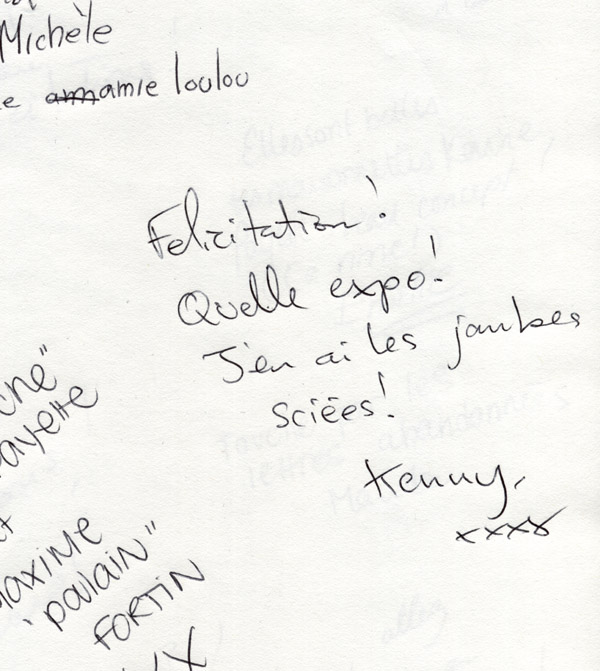 Michèle
e amamie loulou
Felicitation!
Quelle expo!
J'en ai les jambes
sciées!
Kenny,
xxxx
ayette
MAXIME
"poulain"
FORTIN